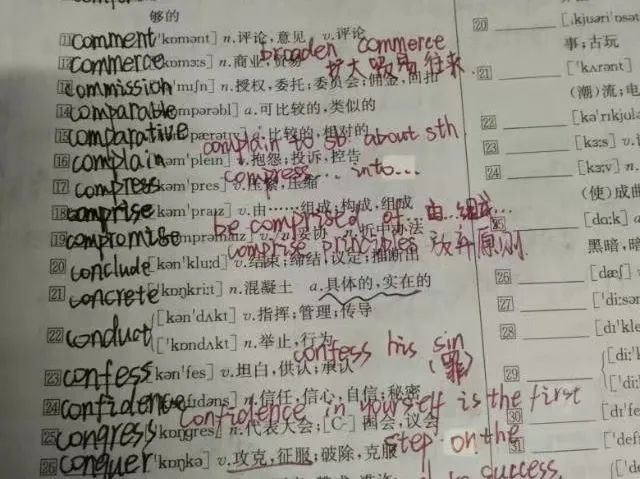 够的
11 comment ['kɒmənt] n.评论,意见 v.评论
12 commerce ['kɒmɜːs] n.商业,贸易
broaden commerce
扩大贸易往来
13 commission [kə'mɪʃn] n.授权,委托;委员会;佣金,回扣
14 comparable ['kɒmpərəbl] a.可比较的,类似的
15 comparative [kəm'pærətɪv] a.比较的,相对的
complain to sb. about sth
16 complain [kəm'pleɪn] v.抱怨;投诉,控告
compress... into...
17 compress [kəm'pres] v.压紧,压缩
18 comprise [kəm'praɪz] v.由……组成;构成,组成
be comprised of 由...组成...
19 compromise ['kɒmprəmaɪz] v./n.妥协,折中办法
comprise principles 放弃原则
20 conclude [kən'kluːd] v.结束;缔结;议定;推断出
21 concrete ['kɒŋkriːt] n.混凝土 a.具体的,实在的
22 conduct [kən'dʌkt] v.指挥;管理;传导
['kɒndʌkt] n.举止,行为
confess his sin
(罪)
23 confess [kən'fes] v.坦白,供认;承认
24 confidence ['kɒnfɪdəns] n.信任,信心,自信;秘密
Confidence in yourself is the first
25 congress ['kɒŋɡres] n.代表大会;[C-]国会,议会
step on the
26 conquer ['kɒŋkə] v.攻克,征服;破除,克服
success.
20
事;古玩
21 ['kʌrənt]
(潮)流;电
22
23 [kɜːs]
24 [kɜːv] n.
(使)成曲
25 [dɑːk] a
黑暗,暗
26 [dæf]
27
28
29
30
31